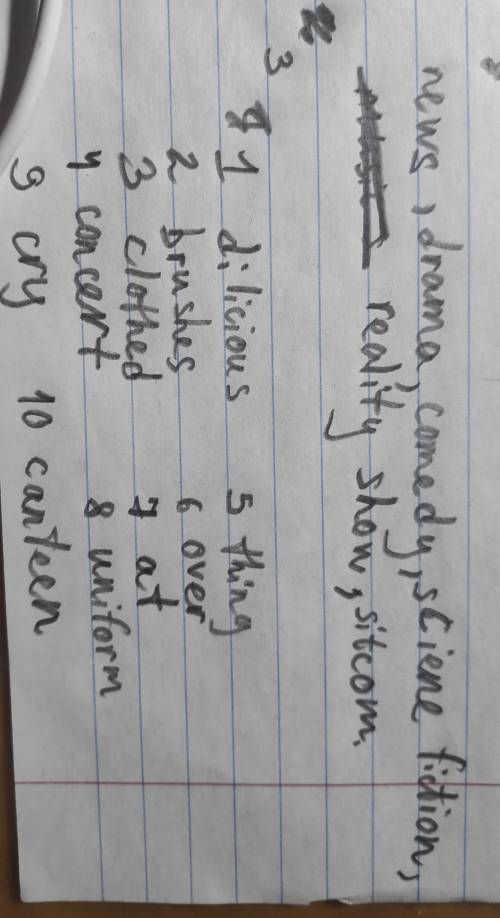 news, drama, comedy, sciene fiction,
reality show, sitcom.
3
1 dilicious 5 thing
2 brushes 6 over
3 clothed 7 at
4 concert 8 uniform
9 cry 10 canteen